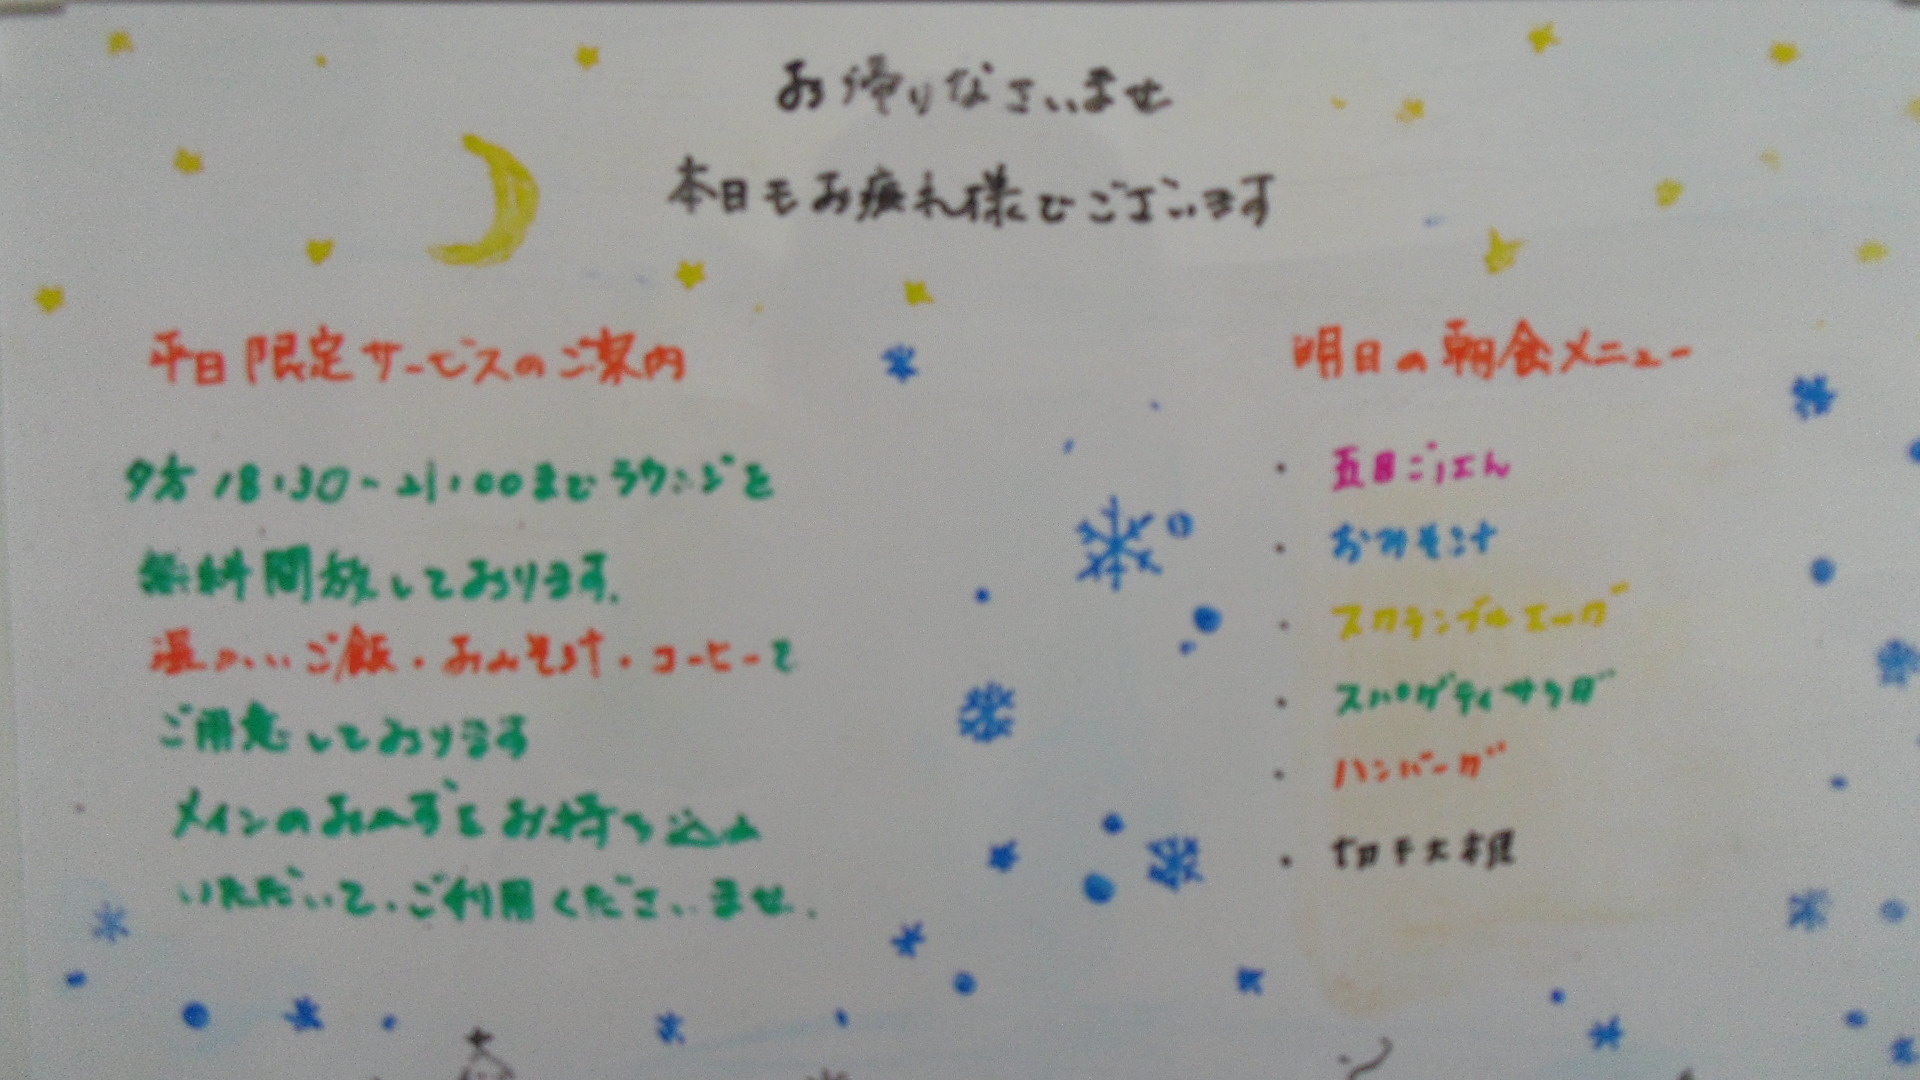 お帰りなさいませ
本日もお疲れ様でございます
平日限定サービスのご案内
夕方18:30~21:00までラウンジを
無料開放しております.
温かいご飯・おみそ汁・コーヒーを
ご用意しております
メインのおかずをお持ち込み
いただいて、ご利用くださいませ.
明日の朝食メニュー
・五目ごはん
・おみそ汁
・スクランブルエッグ
・スパゲティサラダ
・ハンバーグ
・切干大根